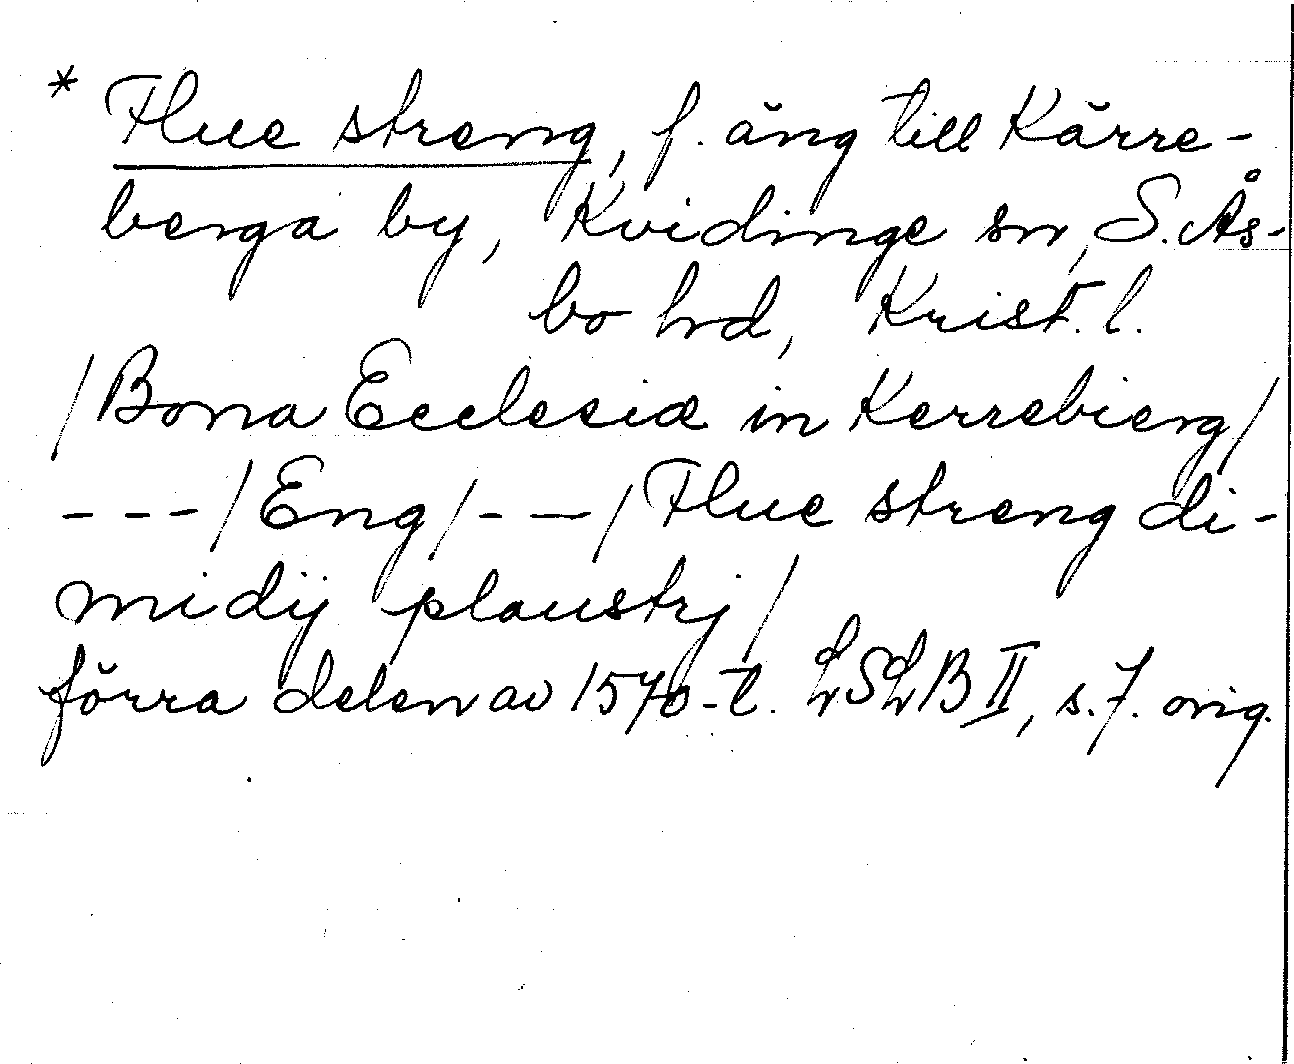 * Flue streng, f. äng till Kärre-
berga by, Kvidinge sn, S. Ås-
bo hd, Krist. l.
/Bona Ecclesiæ in Kerrebierg/
---/Eng/---/Flue streng di-
midij plaustrj/
förra delen av 1570-t. LSLB II, s. 7. orig.